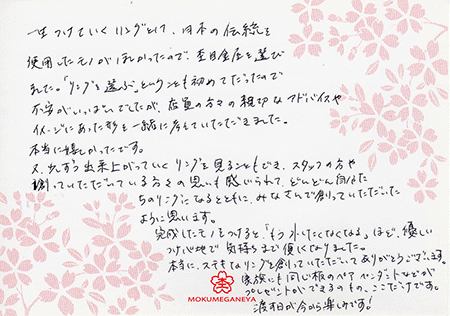 一生つけていくリングとして、日本の伝統を
使用したモノがほしかったので、杢目金屋を選び
ました。「リングを選ぶ」ということも初めてだったので
不安がいっぱいでしたが、店員の方々の親切なアドバイスや
イメージにあった形を一緒に考えていただきました。
本当に嬉しかったです。
又、少しずつ出来上がっていくリングを見ることもでき、スタッフの方や
創っていただいている方々の思いも感じられて、どんどん自分た
ちのリングになるとともに、みなさんで創っていただいた
ように思います。
完成したモノをつけると、「もう外したくなくなる」ほど、優しい
つけ心地で気持ちまで優しくなりました。
本当に、ステキなリングを創っていただいてありがとうございます。
家族にも同じ板のペアペンダントなどが
プレゼントができるのも、ここだけです。
渡す日が今から楽しみです!
MOKUMEGANEYA